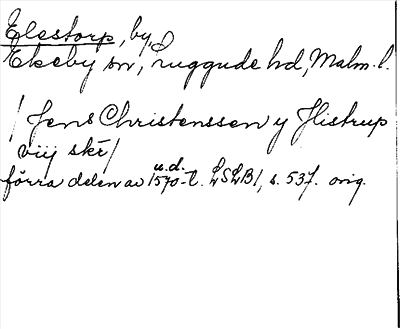 Elestorp, by,
Ekeby sn, Luggude hd, Malm. l.
/ Jens Christenssen y Histrup
viij skr /
u.d.
förra delen av 1570-t. LSLB1, s. 537. orig.